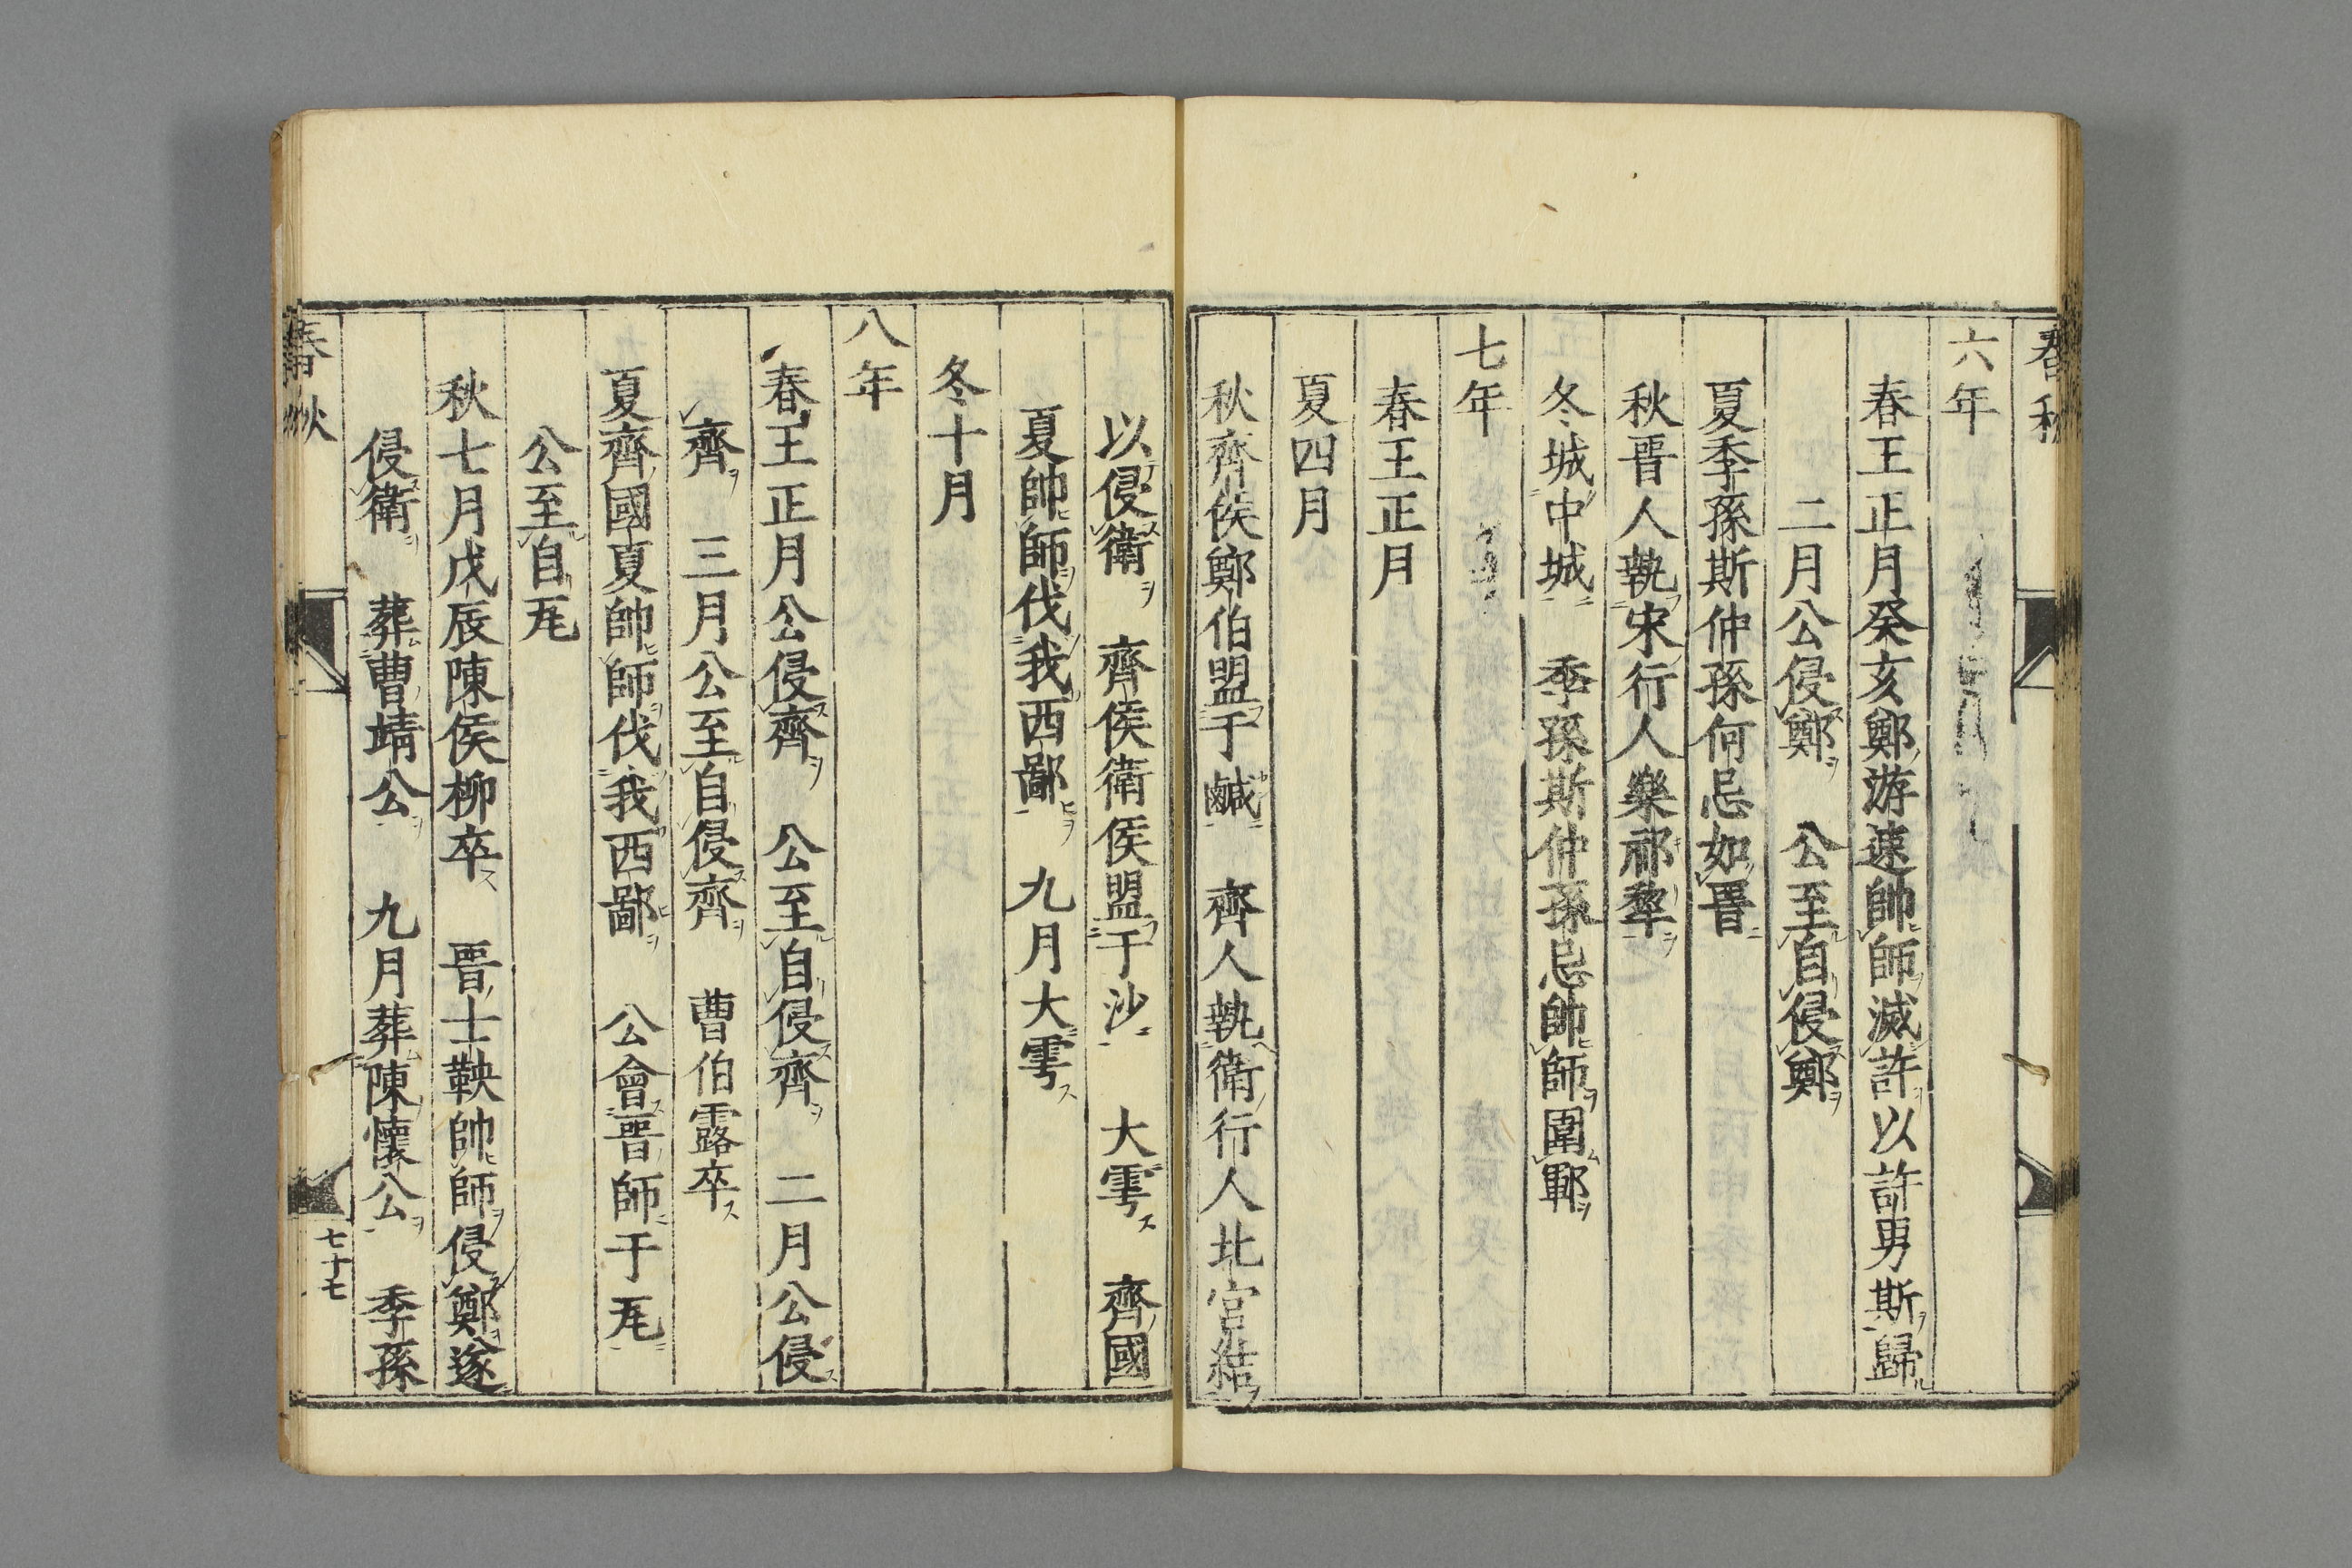 春秋
六年
春王正月癸亥鄭游速帥師滅許以許男斯歸
二月公侵鄭 公至自侵鄭
夏季孫斯仲孫何忌如晋
秋晋人執宋行人樂祁犂
冬城中城 季孫斯仲孫忌帥師圍鄆
七年
春王正月
夏四月
秋齊侯鄭伯盟于鹹 齊人執衛行人北宮結
以侵衛 齊侯衛侯盟于沙 大雩 齊國
夏帥師伐我西鄙 九月大雩
冬十月
八年
春王正月公侵齊 公至自侵齊 二月公侵
齊 三月公至自侵齊 曹伯露卒
夏齊國夏帥師伐我西鄙 公會晋師于瓦
公至自瓦
秋七月戊辰陳侯柳卒 晋士鞅帥師侵鄭遂
侵衛 葬曹靖公 九月葬陳懷公 季孫
春秋
七十七